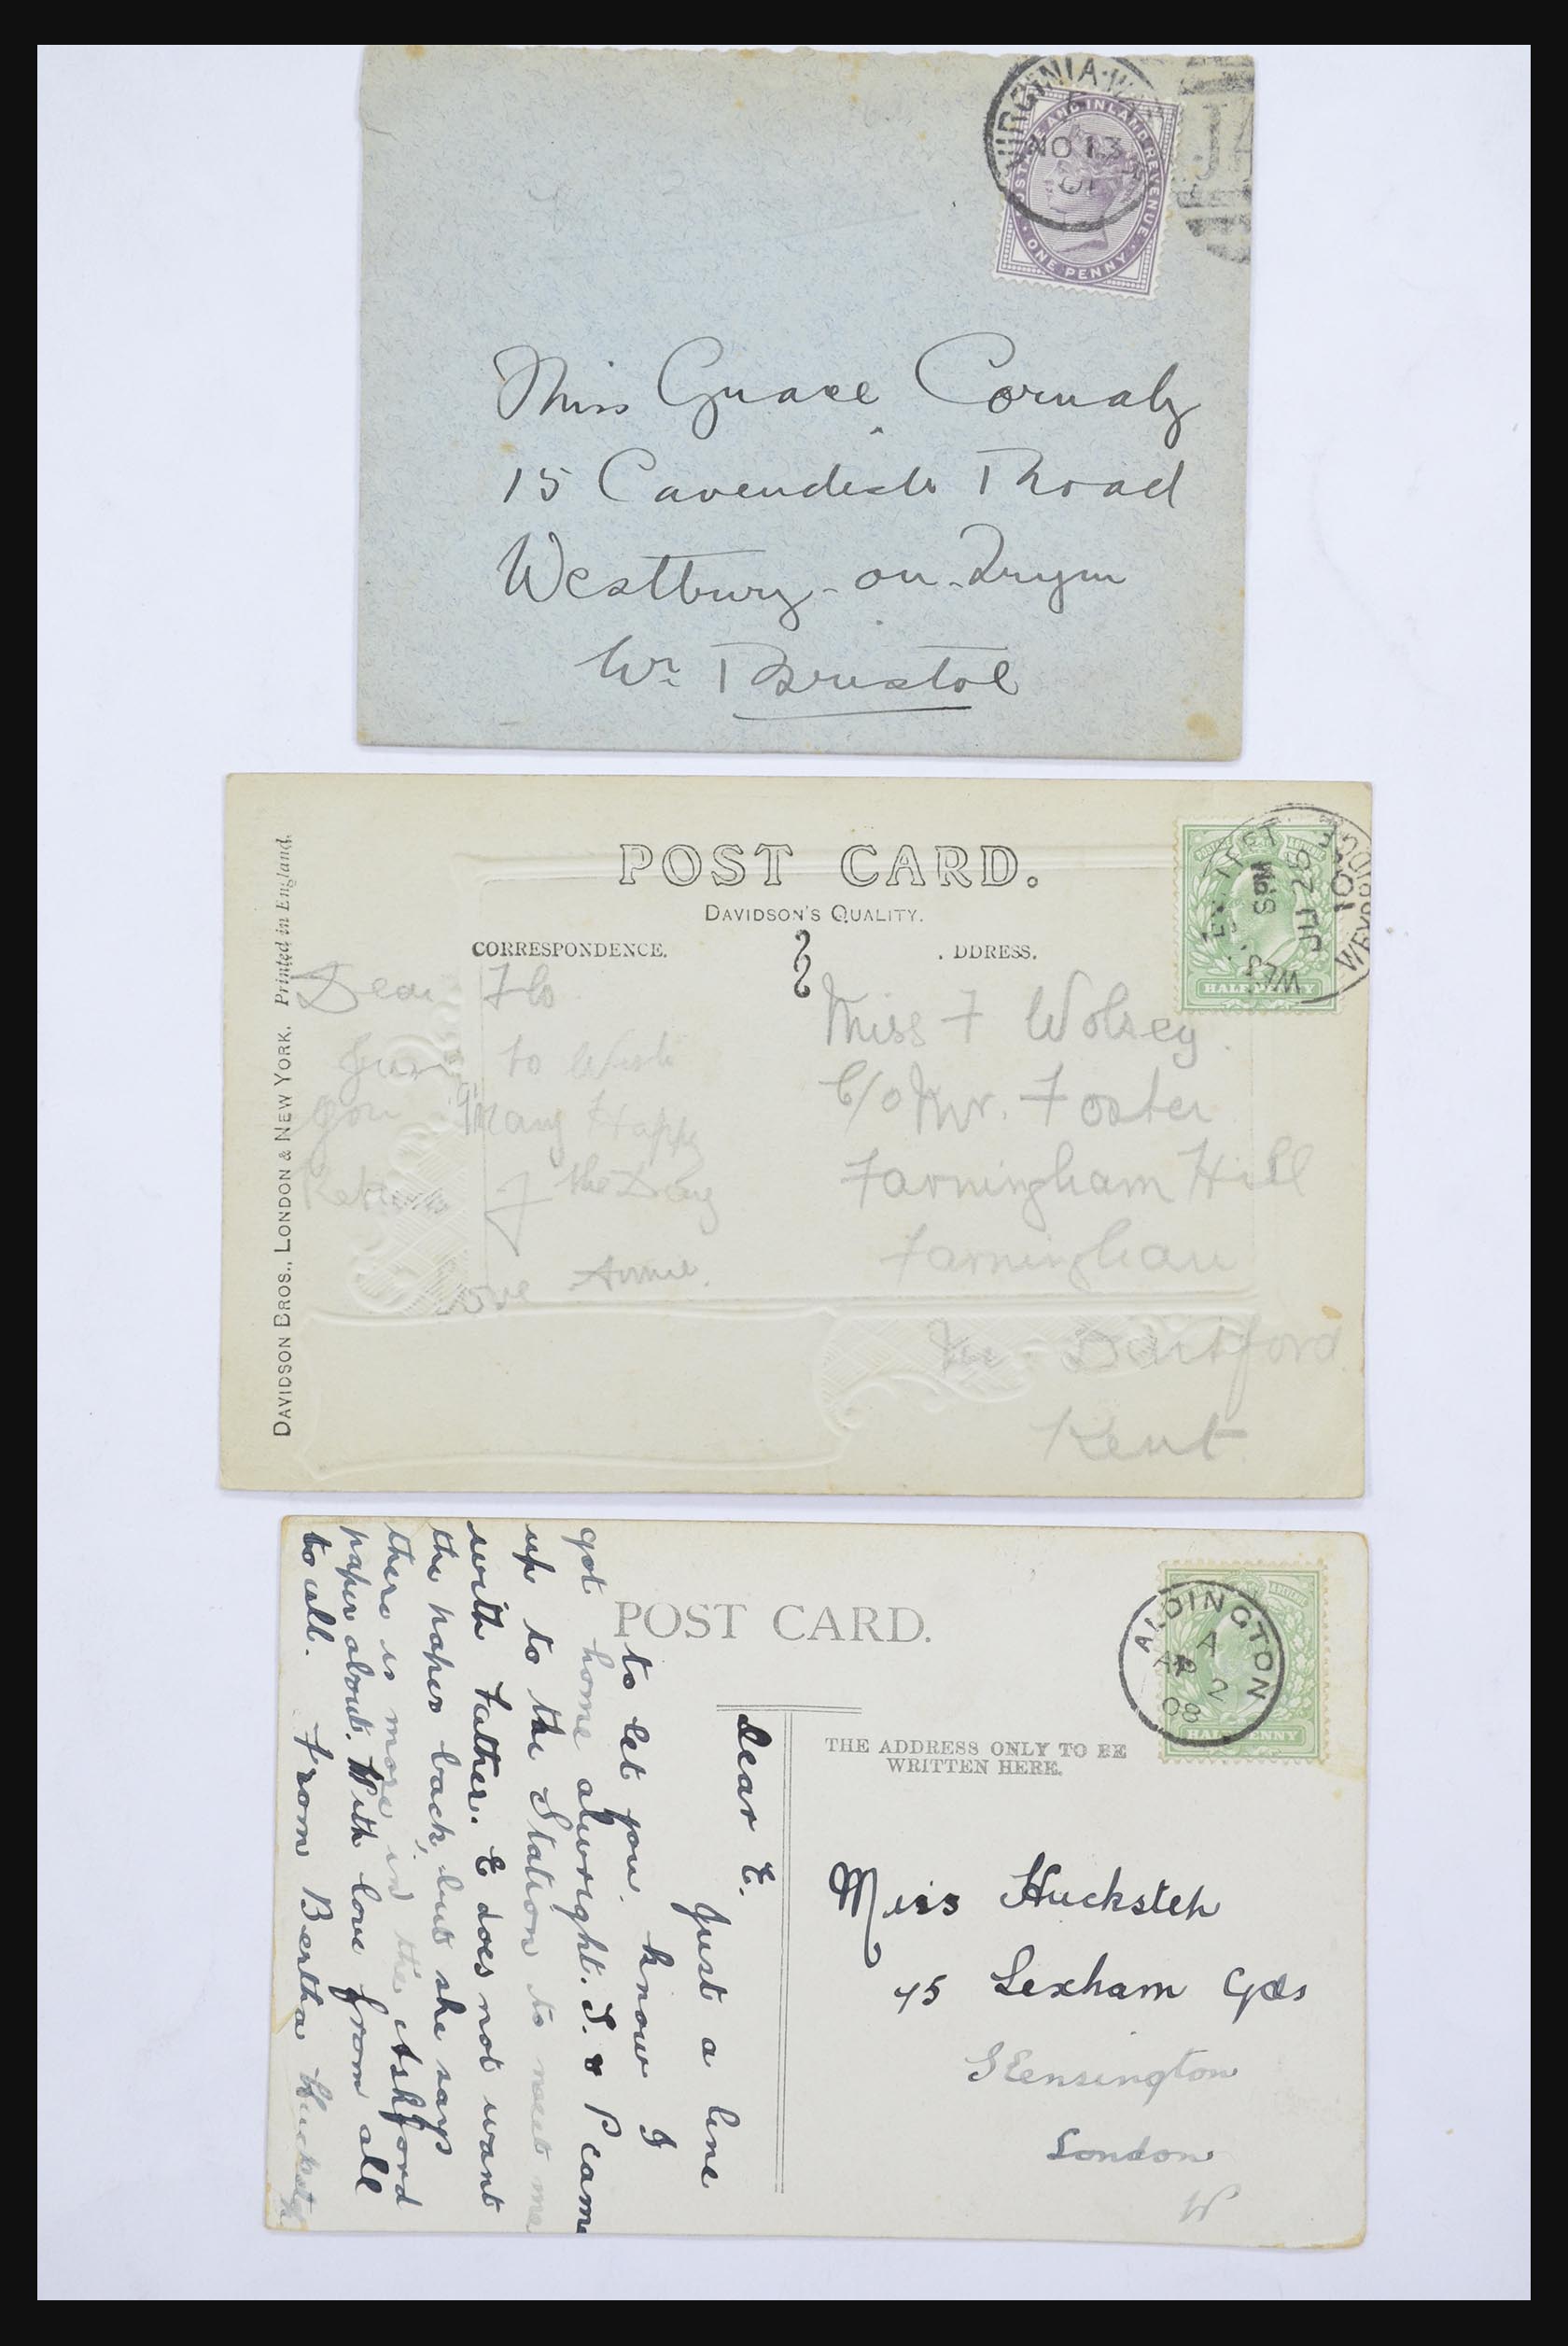 VIRGINIA·W
NO 13
01
JA
POSTAGE AND INLAND REVENUE
ONE PENNY
Miss Grace Cornaby
15 Cavendish Road
Westbury-on-Trym
Nr Bristol
POST CARD.
DAVIDSON'S QUALITY.
CORRESPONDENCE.
DDRESS.
DAVIDSON BROS., LONDON & NEW YORK. Printed in England.
JU 28
WEYBRIDGE
HALF PENNY
Dear Flo
Just to Wish
you Many Happy
Returns of the Day
Love Annie.
Miss F Wolsey
C/o Mr. Foster
Farningham Hill
Farningham
Nr Dartford
Kent
POST CARD.
THE ADDRESS ONLY TO BE
WRITTEN HERE.
ALDINGTON
A
AP 2
08
HALF PENNY
Dear E.
Just a line
to let you know I
got home alwright. S. & P came
up to the Station to meet me
with Father. E does not want
the paper back, but she says
there is more in the Ashford
paper about. With love from all
to all. From Bertha Huckstep
Miss Huckstep
45 Lexham Gds
Kensington
London
W